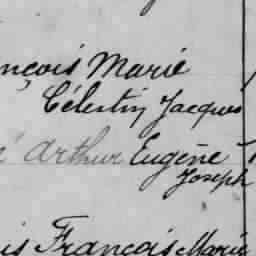 nçois Marie
Célestin Jacques
Arthur Eugène
Joseph
is François Marie